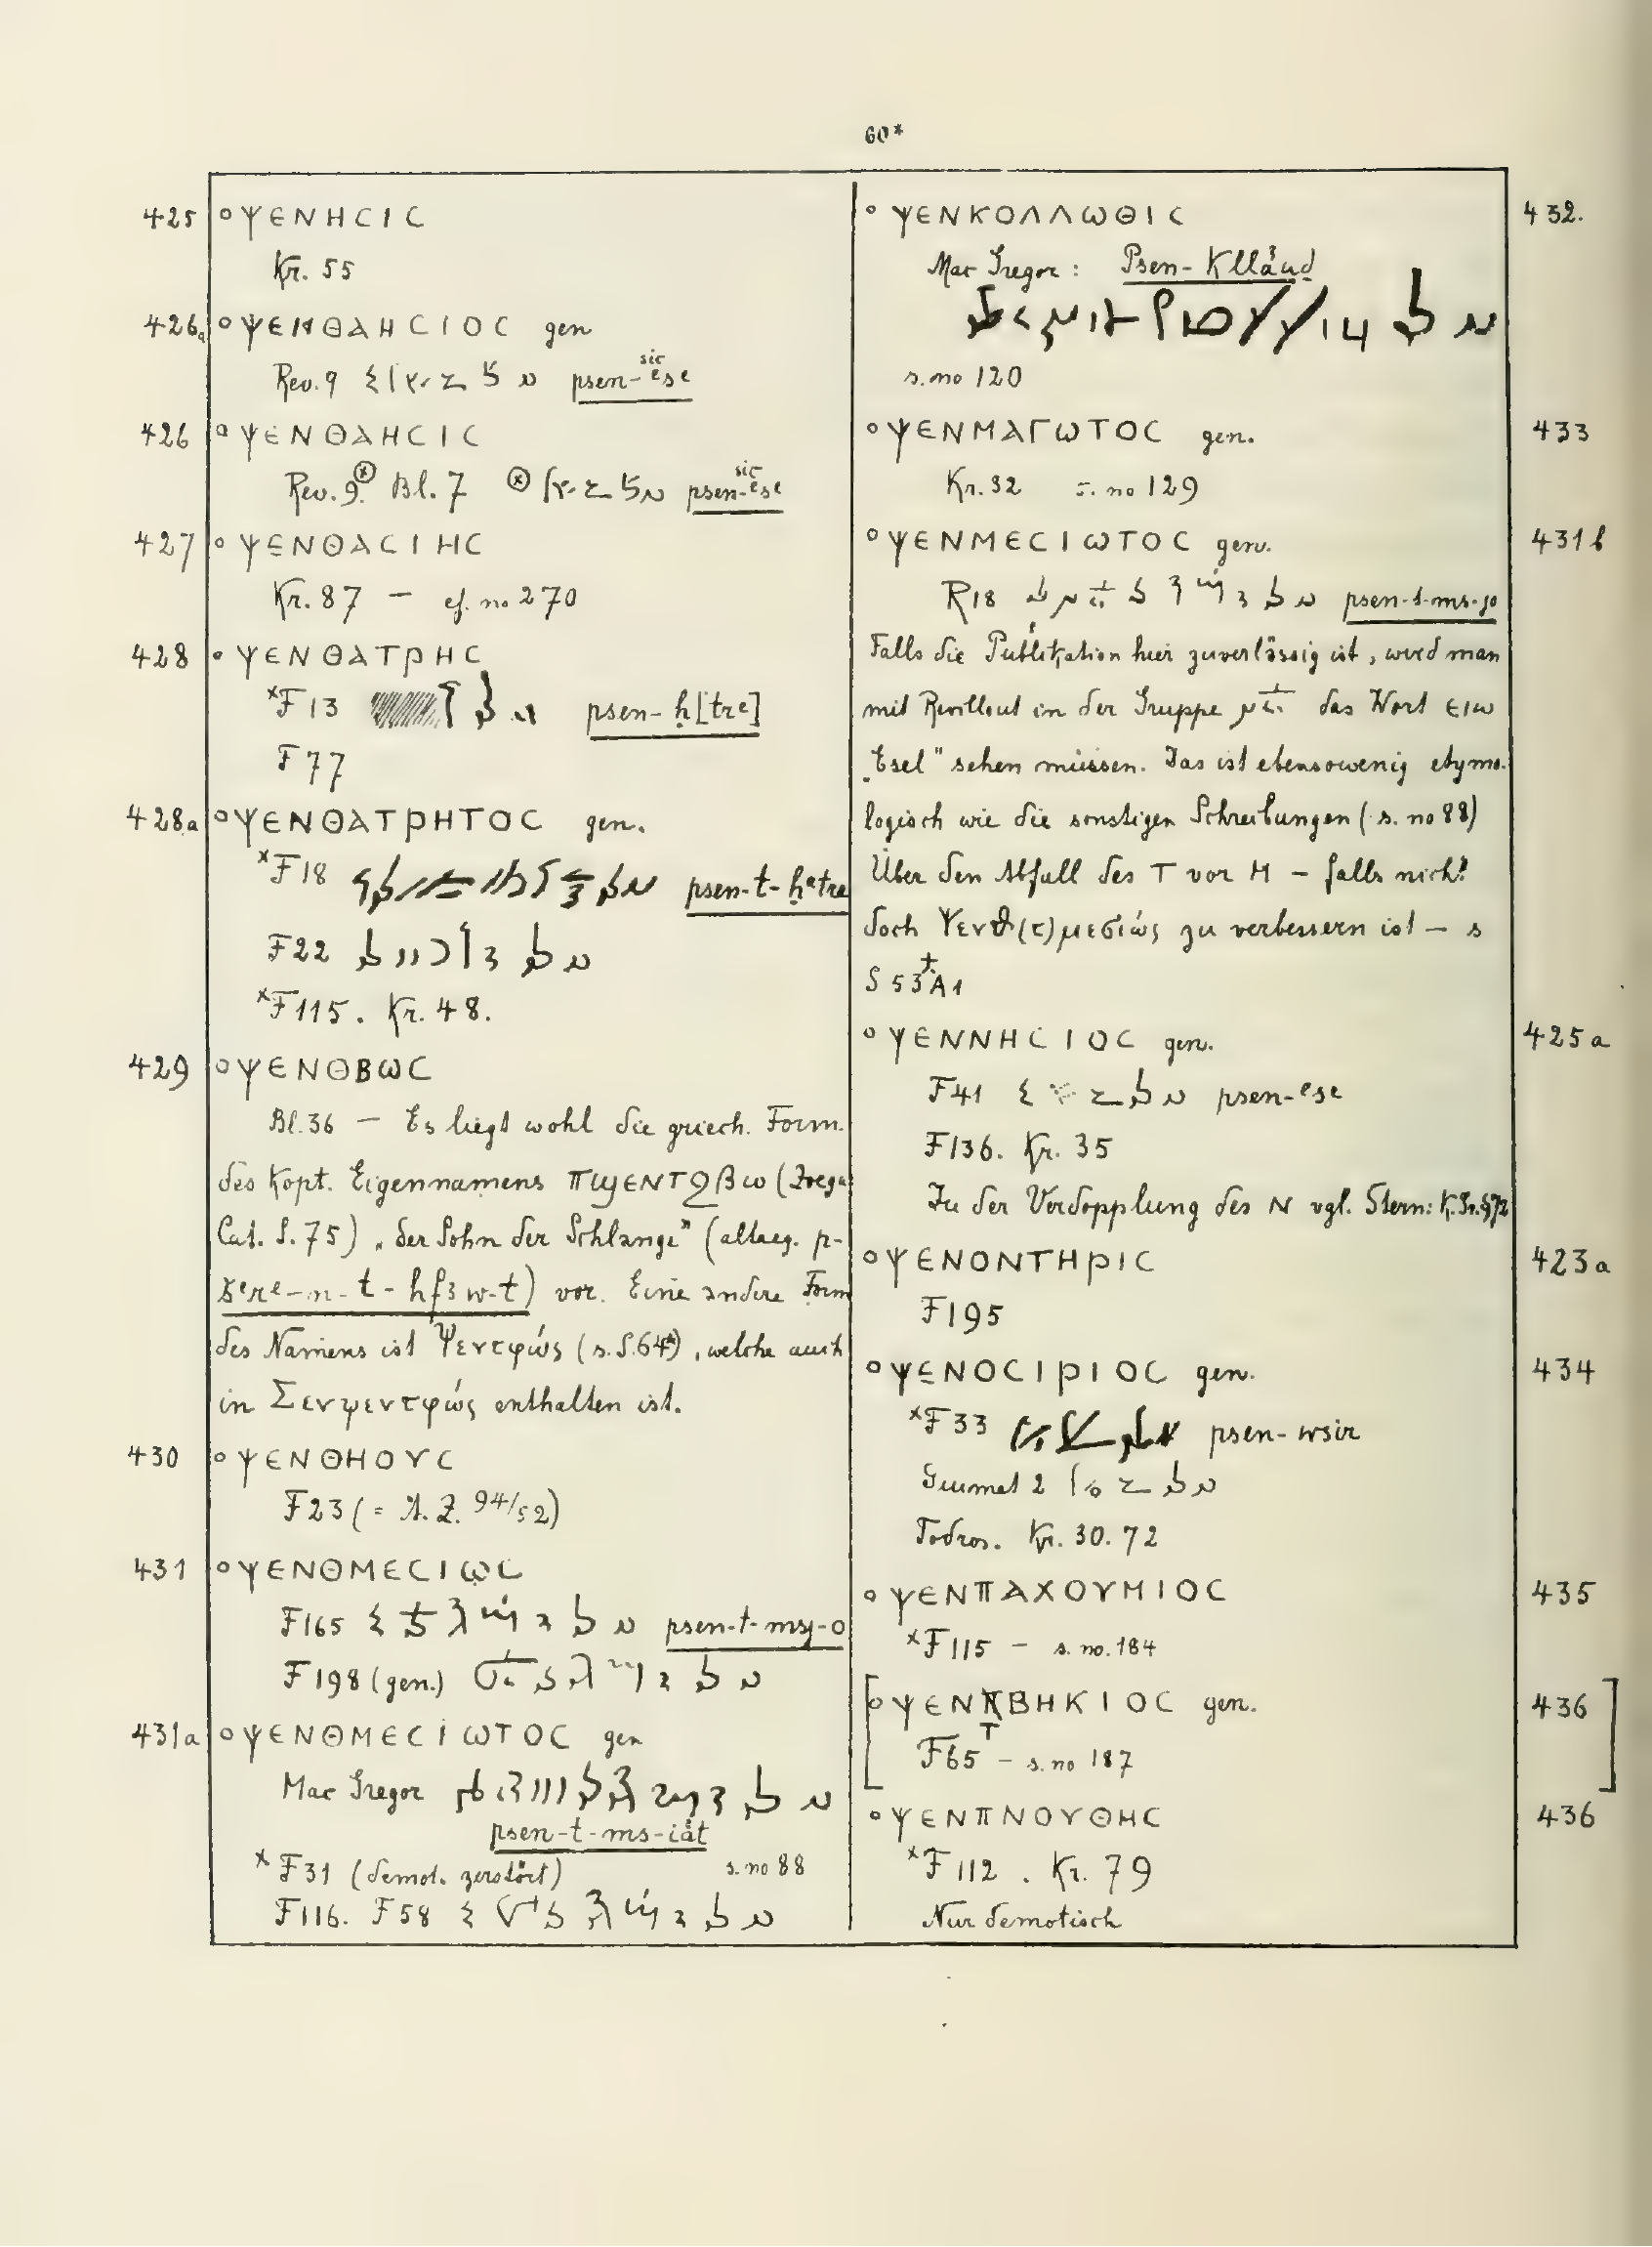 60*
425 ο ΨΕΝΗCΙC
Kr. 55
426a ο ΨΕΝΘΑΗCΙΟC gen
Rev. 9 psen-ᵉse sic
426 ο ΨΕΝΘΑΗCΙC
Rev. 9. ⊗ Bl. 7 ⊗ psen-ᵉse sic
427 ο ΨΕΝΘΑCΙΗC
Kr. 87 — cf. no 270
428 ο ΨΕΝΘΑΤΡΗC
ˣF 13 psen-ḥ[tre]
F 77
428a ο ΨΕΝΘΑΤΡΗΤΟC gen.
ˣF 18 psen-t-ḥᵉtre
F 22
ˣF 115. Kr. 48.
429 ο ΨΕΝΘΒωC
Bl. 36 — Es liegt wohl die griech. Form.
des kopt. Eigennamens ⲡϣⲉⲛⲧϩⲃⲱ (Zoega
Cat. S. 75) „der Sohn der Schlange" (altaeg. p-
šᵉrᵉ-n-t-hfꜣw-t) vor. Eine andere Form
des Namens ist Ψεντφώς (s. S. 64*), welche auch
in Σενψεντφώς enthalten ist.
430 ο ΨΕΝΘΗΟΥC
F 23 (= A.Z. 94/52)
431 ο ΨΕΝΘΜΕCΙωC
F 165 psen-t-msj-o
F 198 (gen.)
431a ο ΨΕΝΘΜΕCΙωΤΟC gen
Mac Gregor
psen-t-ms-iåt
ˣF 31 (demot. zerstört) s. no 88
F 116. F 58
ο ΨΕΝΚΟΛΛωΘΙC 432.
Mac Gregor: Psen-Kllꜣud
s. no 120
ο ΨΕΝΜΑΓωΤΟC gen. 433
Kr. 32 s. no 129
ο ΨΕΝΜΕCΙωΤΟC gen. 431b
R 18 psen-t-ms-jo
Falls die Publikation hier zuverlässig ist, wird man
mit Revillout in der Gruppe das Wort ⲉⲓⲱ
„Esel" sehen müssen. Das ist ebensowenig etymo-
logisch wie die sonstigen Schreibungen (s. no 88)
Über den Abfall des T vor M — falls nicht
doch Ψενθ(τ)μεσιώς zu verbessern ist — s
S 53* A 1
ο ΨΕΝΝΗCΙΟC gen. 425a
F 41 psen-ᵉse
F 136. Kr. 35
Zu der Verdopplung des N vgl. Stern: K. Gr. §72
ο ΨΕΝΟΝΤΗΡΙC 423a
F 195
ο ΨΕΝΟCΙΡΙΟC gen. 434
ˣF 33 psen-wsir
Guimet 2
Todros. Kr. 30. 72
ο ΨΕΝΠΑΧΟΥΜΙΟC 435
ˣF 115 — s. no. 184
[ο ΨΕΝΤΒΗΚΙΟC gen. 436]
F 65 — s. no 187
ο ΨΕΝΠΝΟΥΘΗC 436
ˣF 112. Kr. 79
Nur demotisch